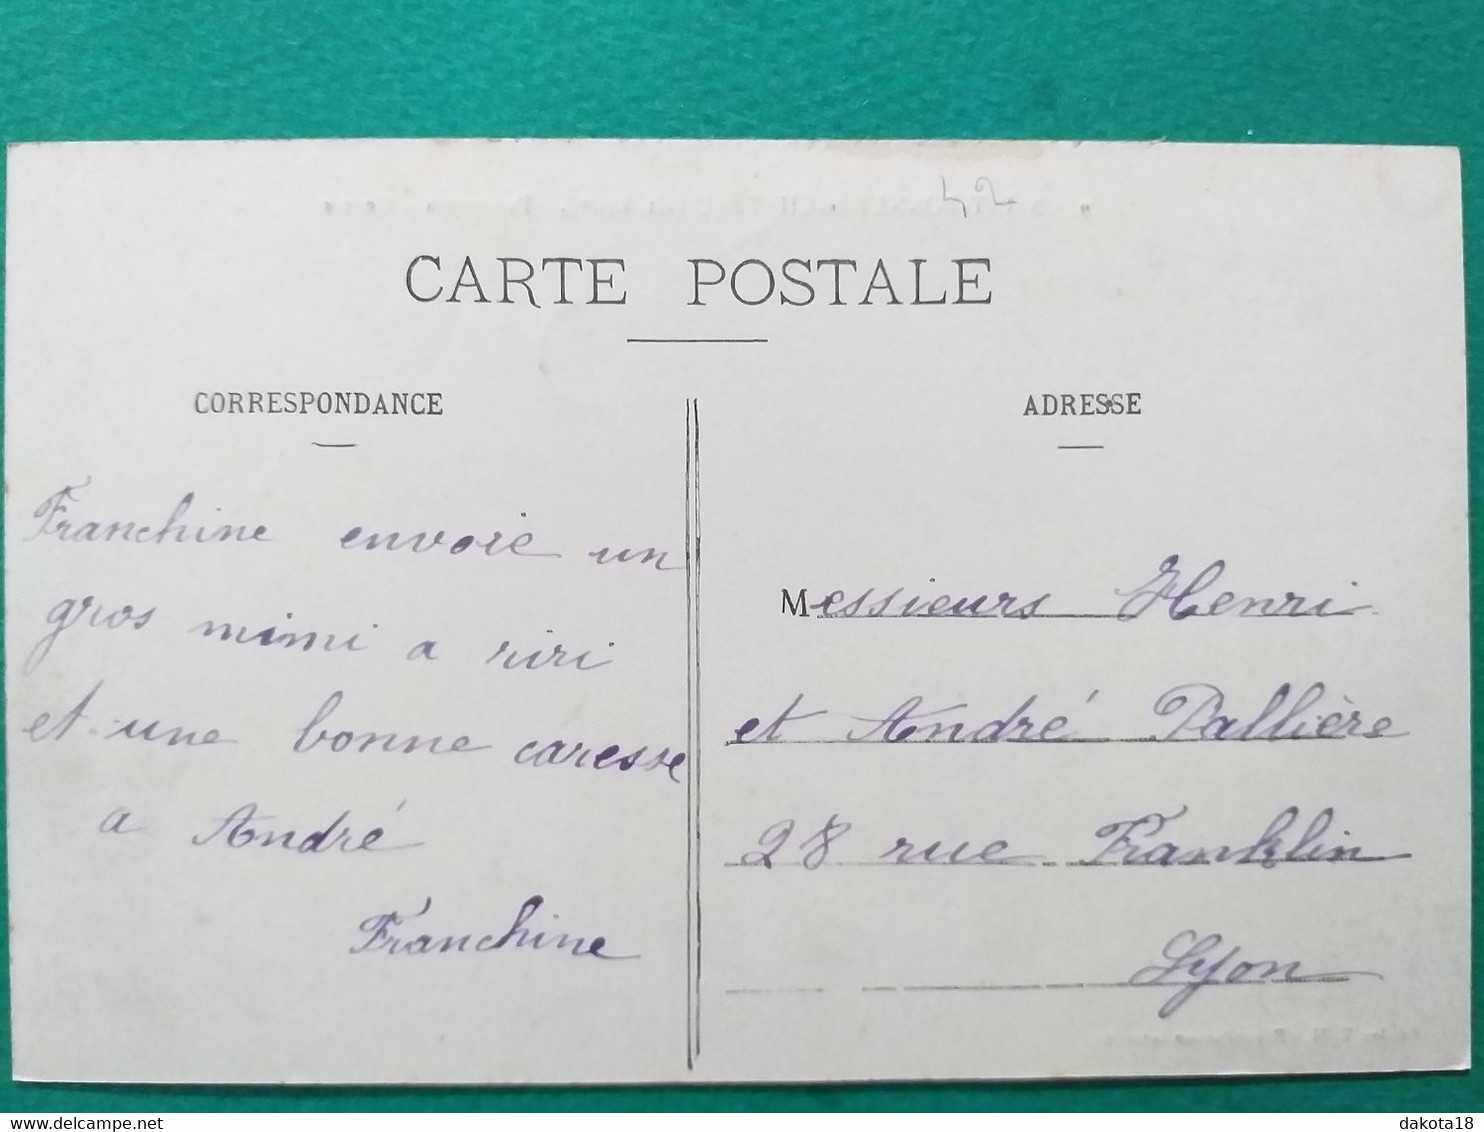 42
CARTE POSTALE
CORRESPONDANCE
Franchine envoie un
gros mimi a riri
et une bonne caresse
a André
Franchine
ADRESSE
Messieurs Henri
et André Pallière
28 rue Franklin
Lyon
delcampe.net
dakota18